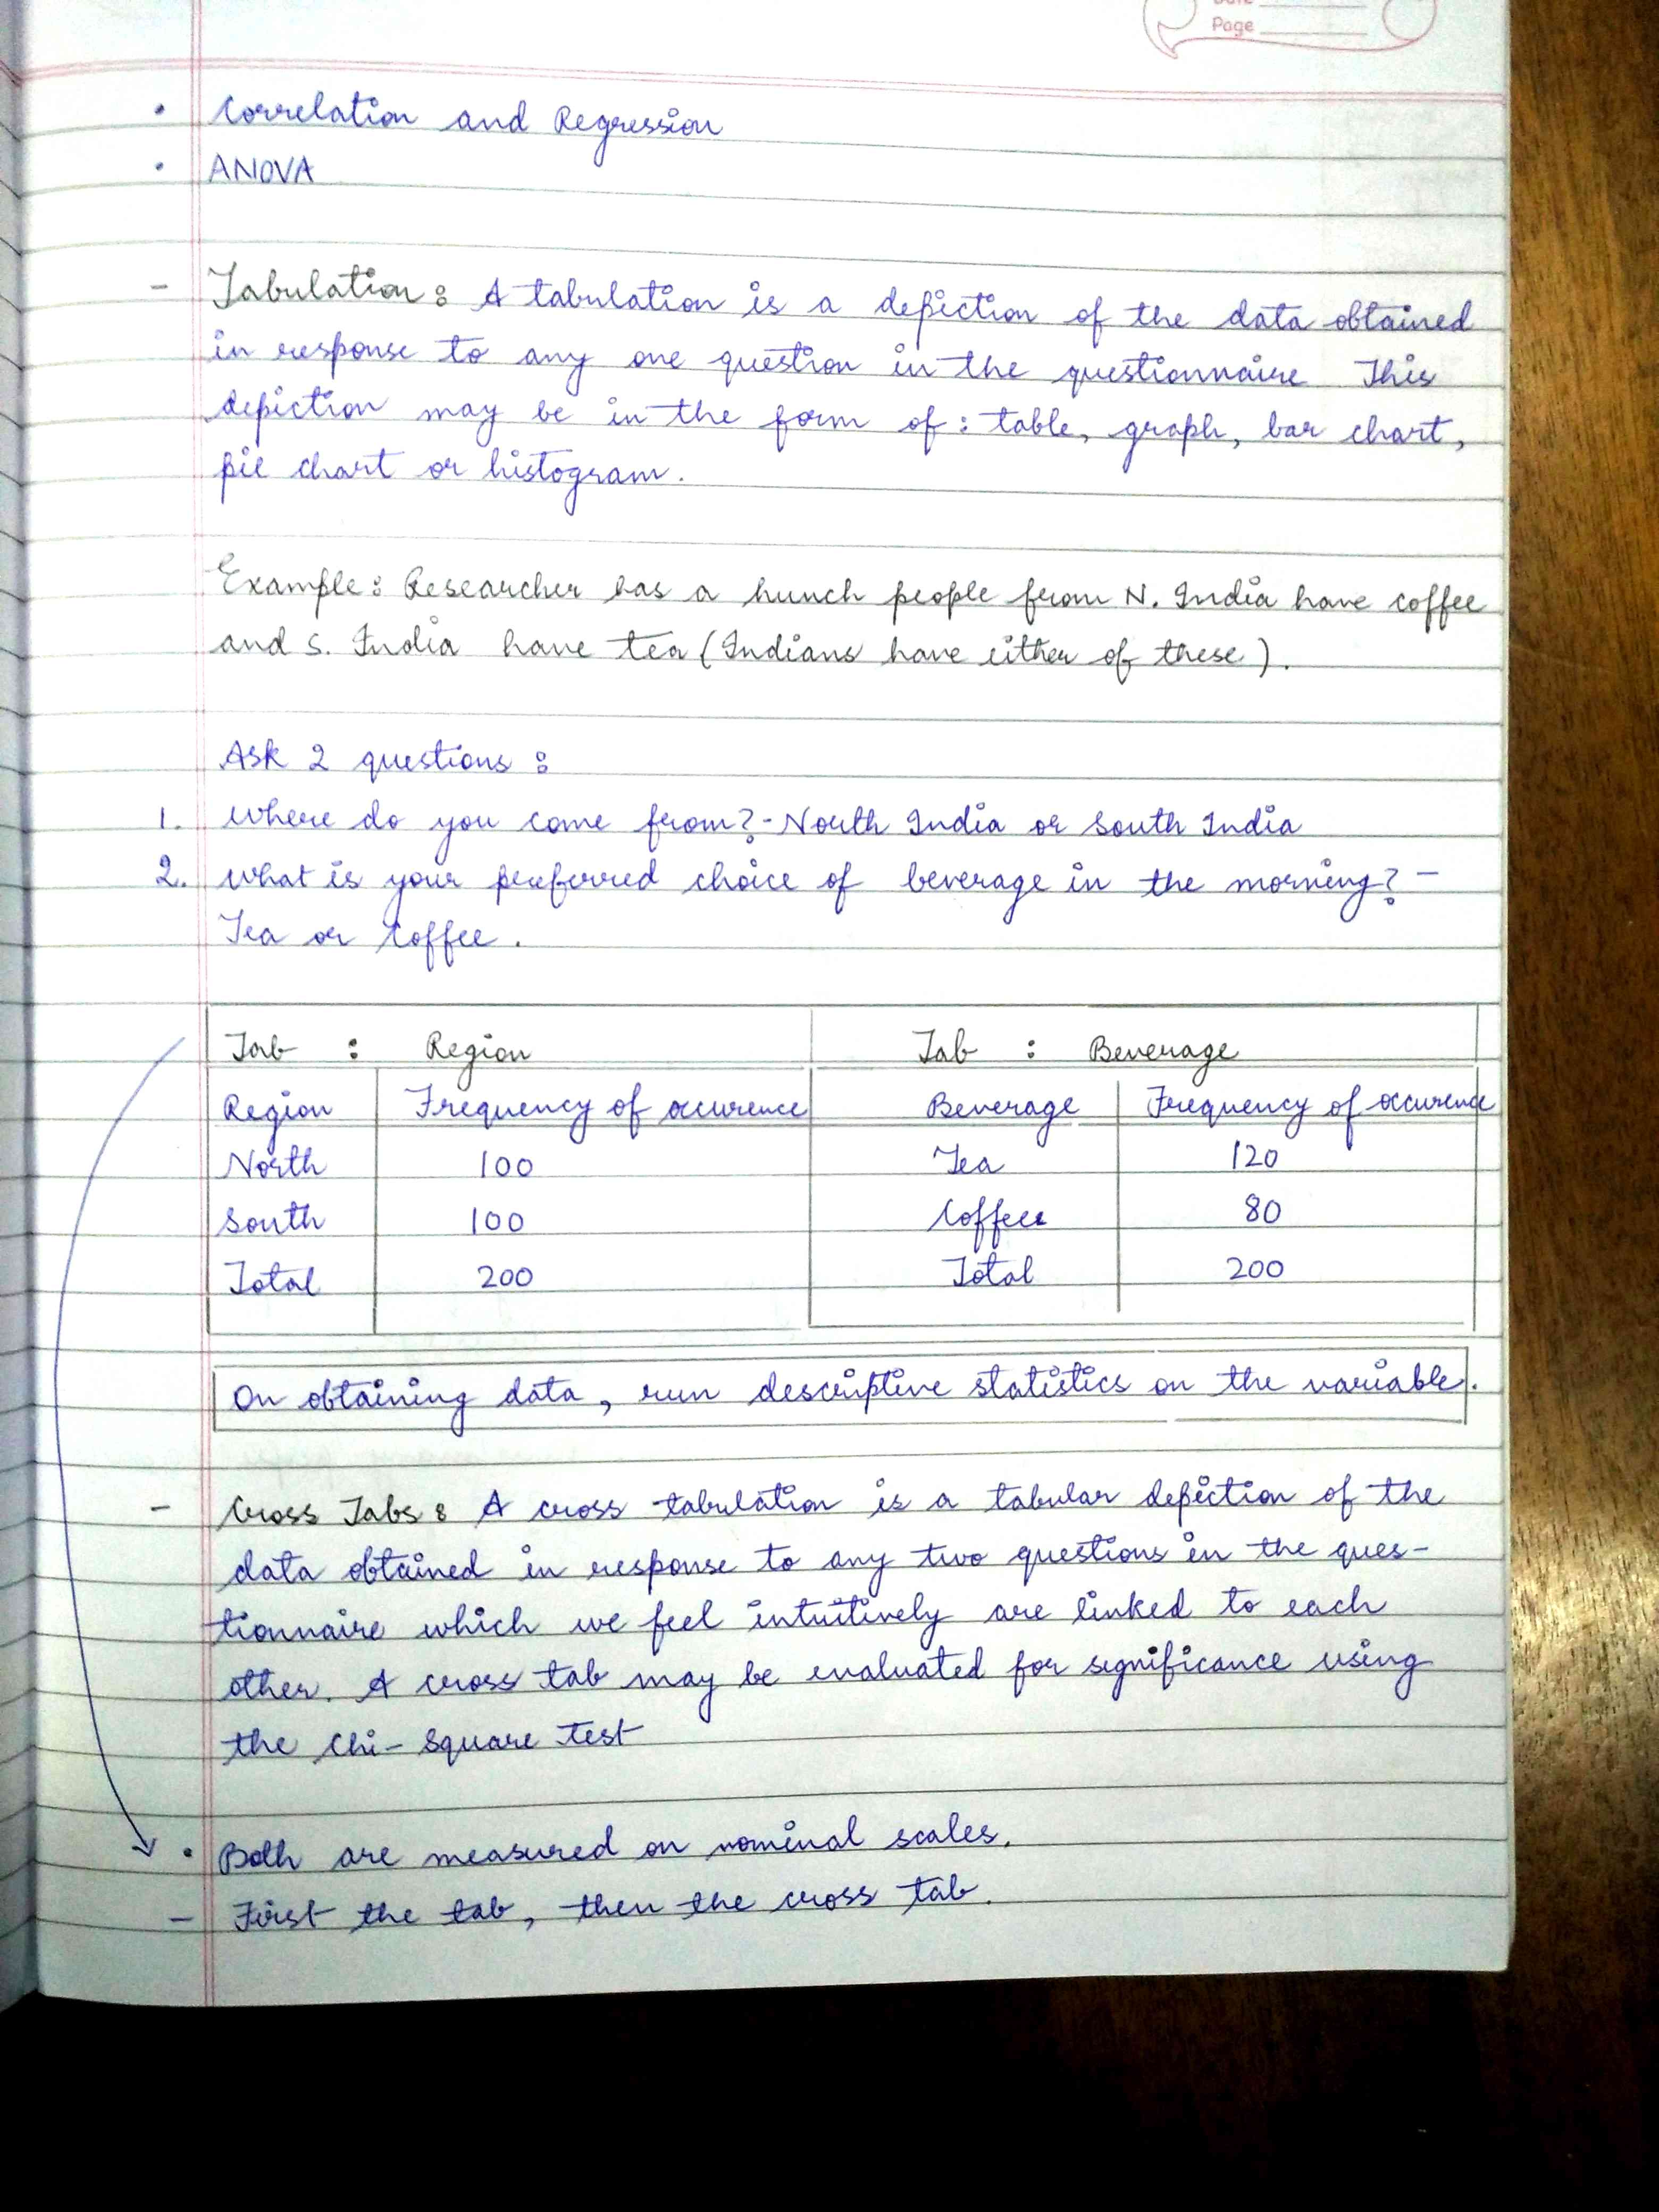 Page
• Correlation and Regression
• ANOVA
- Tabulation : A tabulation is a depiction of the data obtained
in response to any one question in the questionnaire This
depiction may be in the form of : table, graph, bar chart,
pie chart or histogram.
Example : Researcher has a hunch people from N. India have coffee
and S. India have tea (Indians have either of these).
Ask 2 questions :
1. Where do you come from? - North India or South India
2. What is your preferred choice of beverage in the morning? -
Tea or Coffee.
Tab : Region Tab : Beverage
Region Frequency of occurence Beverage Frequency of occurence
North 100 Tea 120
South 100 Coffee 80
Total 200 Total 200
On obtaining data, run descriptive statistics on the variable.
- Cross Tabs : A cross tabulation is a tabular depiction of the
data obtained in response to any two questions in the ques-
tionnaire which we feel intuitively are linked to each
other. A cross tab may be evaluated for significance using
the Chi - Square Test
• Both are measured on nominal scales.
- First the tab, then the cross tab.